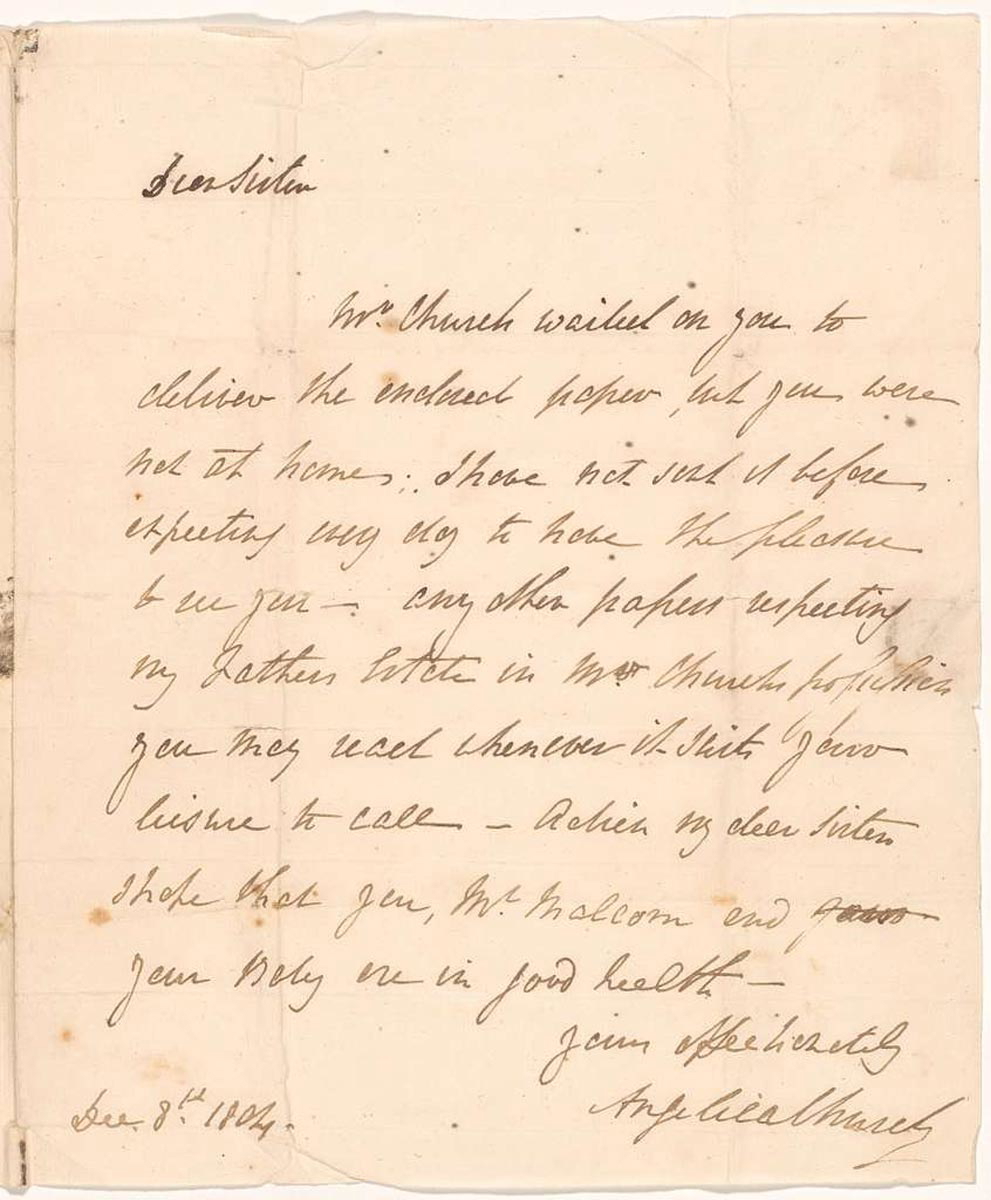 Dear Sister
Mr. Church waited on you to
deliver the enclosed paper, but you were
not at home; I have not sent it before
expecting every day to have the pleasure
to see you — any other papers respecting
my Fathers Estate in Mr Churchs possession
you may read whenever it suits your
leisure to call — Adieu my dear sister
I hope that you, Mr. Malcom and your
your Baby are in good health —
yours affectionately
Angelica Church
Dec. 8th. 1804.